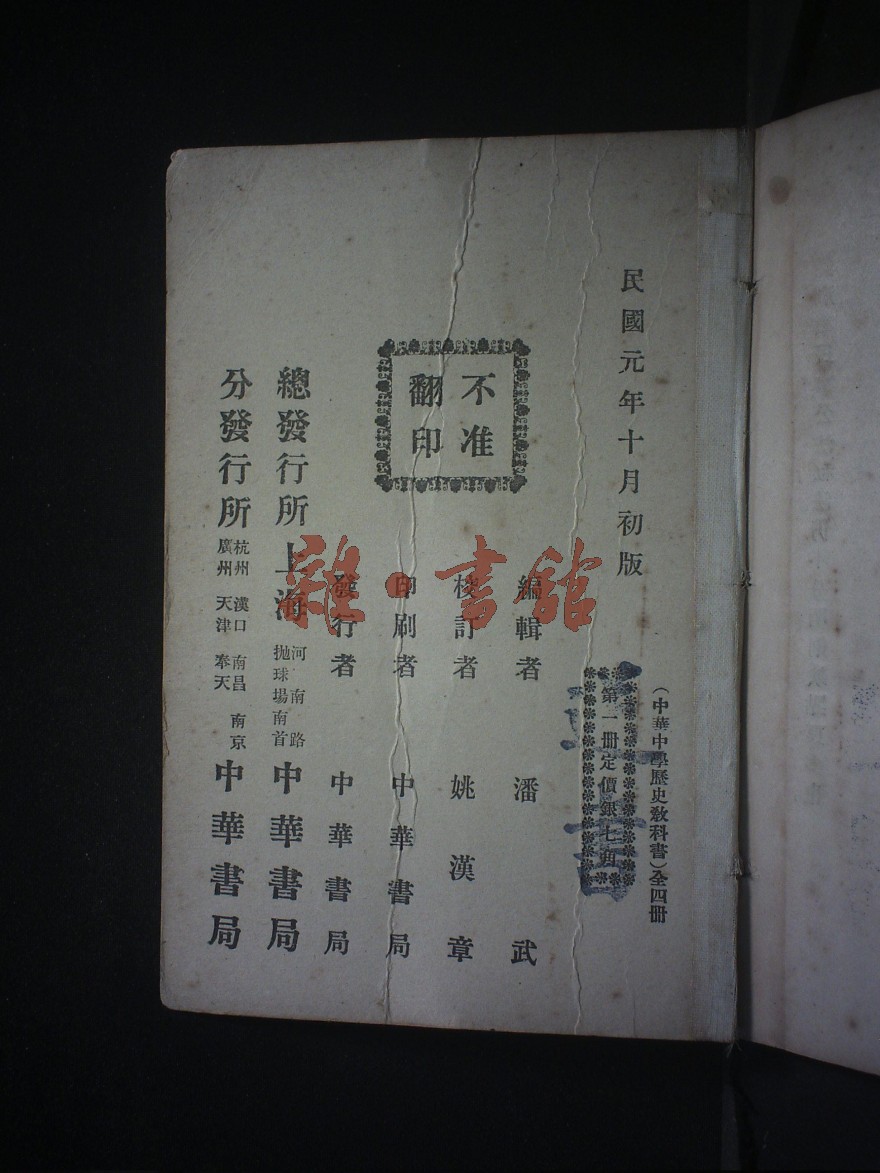 民國元年十月初版
（中華中學歷史教科書）全四冊
第一冊定價銀七角
不准
翻印
編輯者 潘武
校訂者 姚漢章
印刷者 中華書局
發行者 中華書局
總發行所 上海 河南路 拋球場南首 中華書局
分發行所 杭州 漢口 南昌 南京 廣州 天津 奉天 中華書局
雜·書館